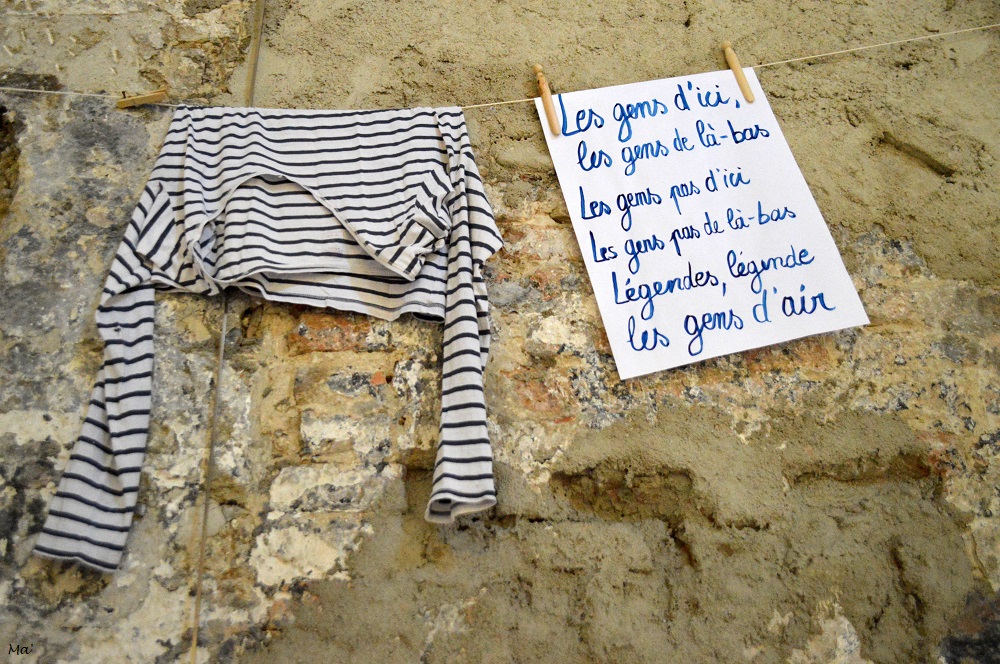 Les gens d'ici,
les gens de là-bas
Les gens pas d'ici
Les gens pas de là-bas
Légendes, légende
les gens d'air
Ma'